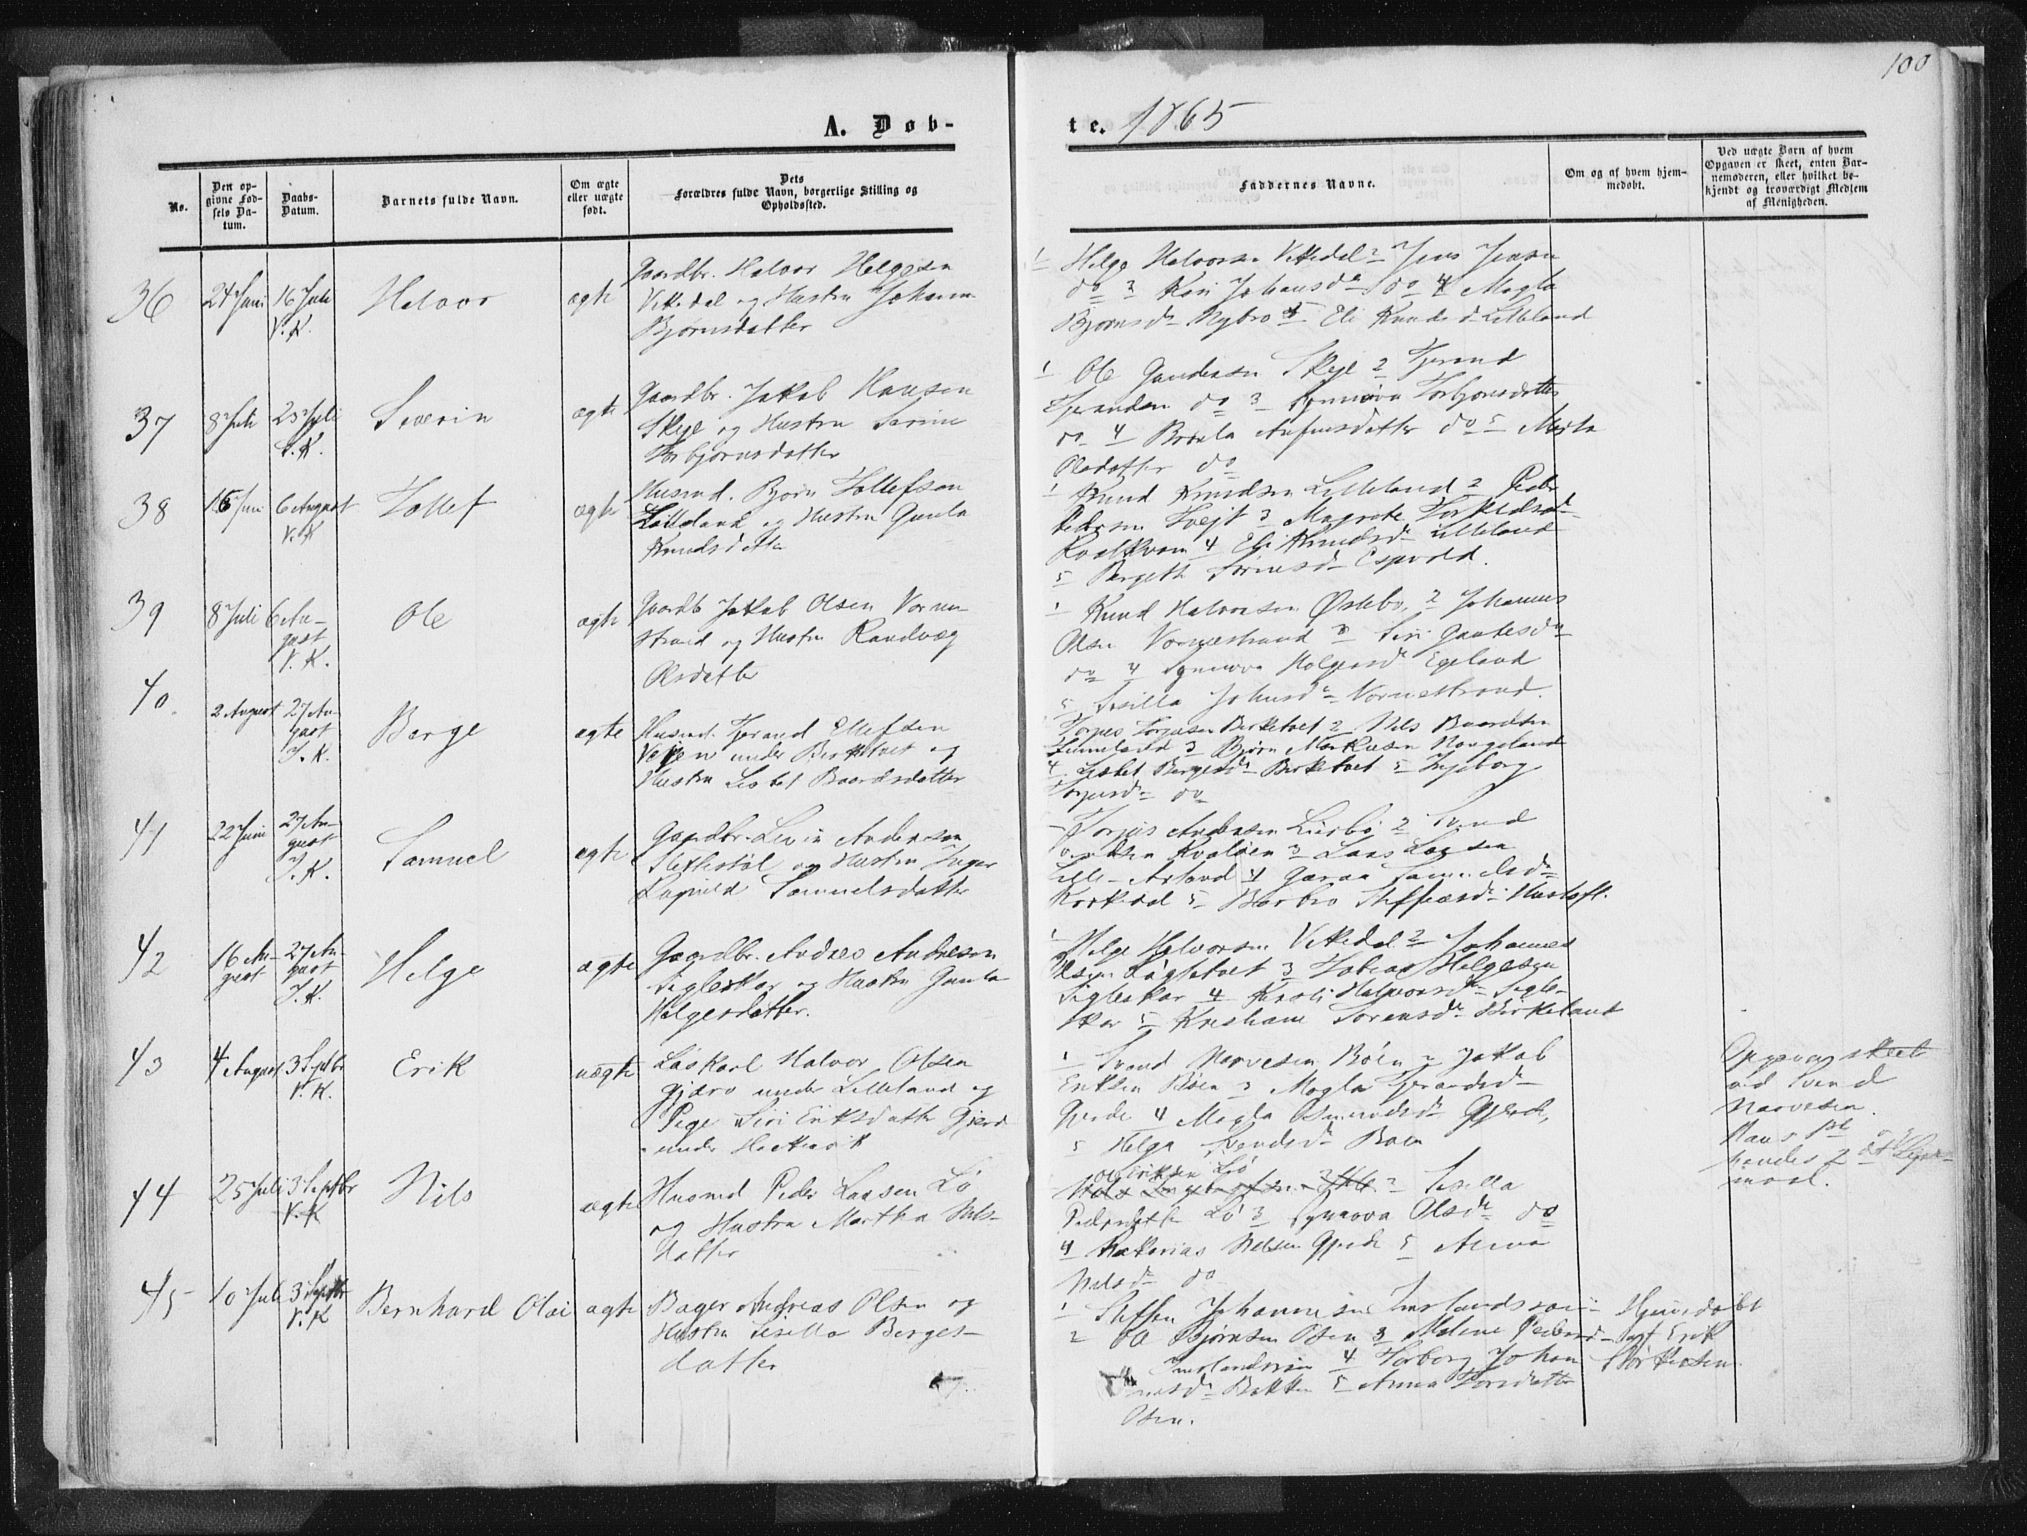 100
A. Døb-
te. 1865
No.
Den op-
givne Fød-
sels Da-
tum.
Daabs-
Datum.
Barnets fulde Navn.
Om ægte
eller uægte
født.
Dets
Forældres fulde Navn, borgerlige Stilling og
Opholdssted.
Faddernes Navne.
Om og af hvem hjem-
medøbt.
Ved uægte Barn af hvem
Opgaven er skeet, enten Bar-
nemoderen, eller hvilket be-
kjendt og troværdigt Medlem
af Menigheden.
36
24 Juni
16 Juli
V. K.
Halvor
ægte
Gaardbr. Halvor Helgesen
Vikedal og Hustru Johanne
Bjørnsdatter
1 Helge Halvorsen Vikedal 2 Jens Jensen
do 3 Kari Johansd. do 4 Magla
Bjørnsd. Nybro 5 Eli Knudsd. Lilleland
37
8 Juli
23 Juli
V. K.
Severin
ægte
Gaardbr. Jakob Hansen
Skeje og Hustru Serine
Torbjørnsdatter
1 Ole Gundersen Skeje 2 Tjerand
Tjerandsen do 3 Synnøva Torbjørnsdatter
do 4 Brønla datter do 5 Marta
Olsdatter do
38
15 Juni
6 August
V. K
Tollef
ægte
Husmd. Bjørn Tollefsen
Lilleland og Hustru Gunla
Knudsdatter
1 Knud Knudsen Lilleland 2 Peder
Pedersen Tvejt 3 Magrete
4 Eli Knudsd. Lilleland
5 Bergete Espevold.
39
8 Juli
6 Au-
gust
V. K.
Ole
ægte
Gaardb Jakob Olsen Vorme-
strand og Hustru Randveg
Olsdatter
1 Knud Halvorsen Østebø 2 Johannes
Olsen Vormestrand 3 Siri Gautesd.
do 4 Synnøva Holgersd. Egeland
5 Sesilla Johnsd. Vormestrand.
40
2 August
27 Au-
gust
J. K.
Berge
ægte
Husmd. Tjerand Ellefsen
Vejen under Birketvet og
Hustru Lisbet Baardsdatter
Torjus Torjusen Birketvet 2 Nils Baardsen
3 Bjørn Markusen Haugeland
4 Lisbet Bergesd. Birketvet 5 Ingeborg
Torjusd. do
41
22 Juni
27 Au-
gust
J. K.
Samuel
ægte
Gaardbr. Levin Andersen
og Hustru Inger
Ragnild Samuelsdatter
Torjus Andersen 2 Svend
3 Lars Larsen
Lille-Arland 4 Samuelsd.
5 Barbro Steffensd. Hustoft.
42
16 Au-
gust
27 Au-
gust
J. K.
Helge
ægte
Gaardbr. Andres Andresen
Sigleskar og Hustru Gunla
Helgesdatter.
1 Helge Halvorsen Vikedal 2 Johannes
Olsen 3 Tobias Helgesen
Sigleskar 4 Kirsti Halvorsd. Sigle-
skar 5 Kristiane Sørensd. Birkeland
43
4 August
3 Septbr
V. K.
Erik
uægte
Løskarl Halvor Olsen
Gjære under Lilleland og
Pige Siri Eriksdatter Gjerde
under
1 Svend Narvesen Bøen 2 Jakob
Eriksen Bøen 3 Magla Tjerandsd.
Gjerde 4 Magla Osmundsd. Gjerde,
5 Helga Svendsd. Bøen
Opgaven skeet
ved Svend
Narvesen.
Hans 1ste
hendes 2det Lejer-
maal.
44
25 Juli
3 Septbr
V. K
Nils
ægte
Husmd Peder Larsen Lø
og Hustru Martha Nils-
datter
Ole Eriksen Lø
2 Sesilla
Pedersdatter Lø 3 Synnøva Olsd. do
4 Sakarias Nilsen Gjerde 5 Anna
Nilsd. do
45
10 Juli
3 Septbr
V. K
Bernhard Olai
ægte
Bager Andreas Olsen og
Hustru Sesilla Berges-
datter
1 Steffen Johannesen Imslandssjøen
2 Ole Bjørnsen Osen 3 Malene Pedersd.
Imslandssjøen 4 Torborg Johan-
nesd. Bakken 5 Anna Toresdatter
Osen.
Hjemmedøbt
af Erik